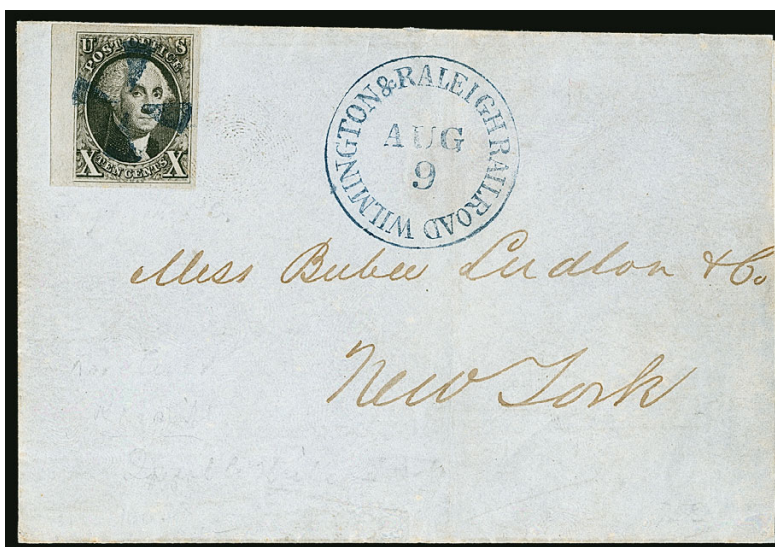 U S
POST OFFICE
X TEN CENTS X
WILMINGTON & RALEIGH RAILROAD
AUG
9
Mess Ludlow & Co.
New York